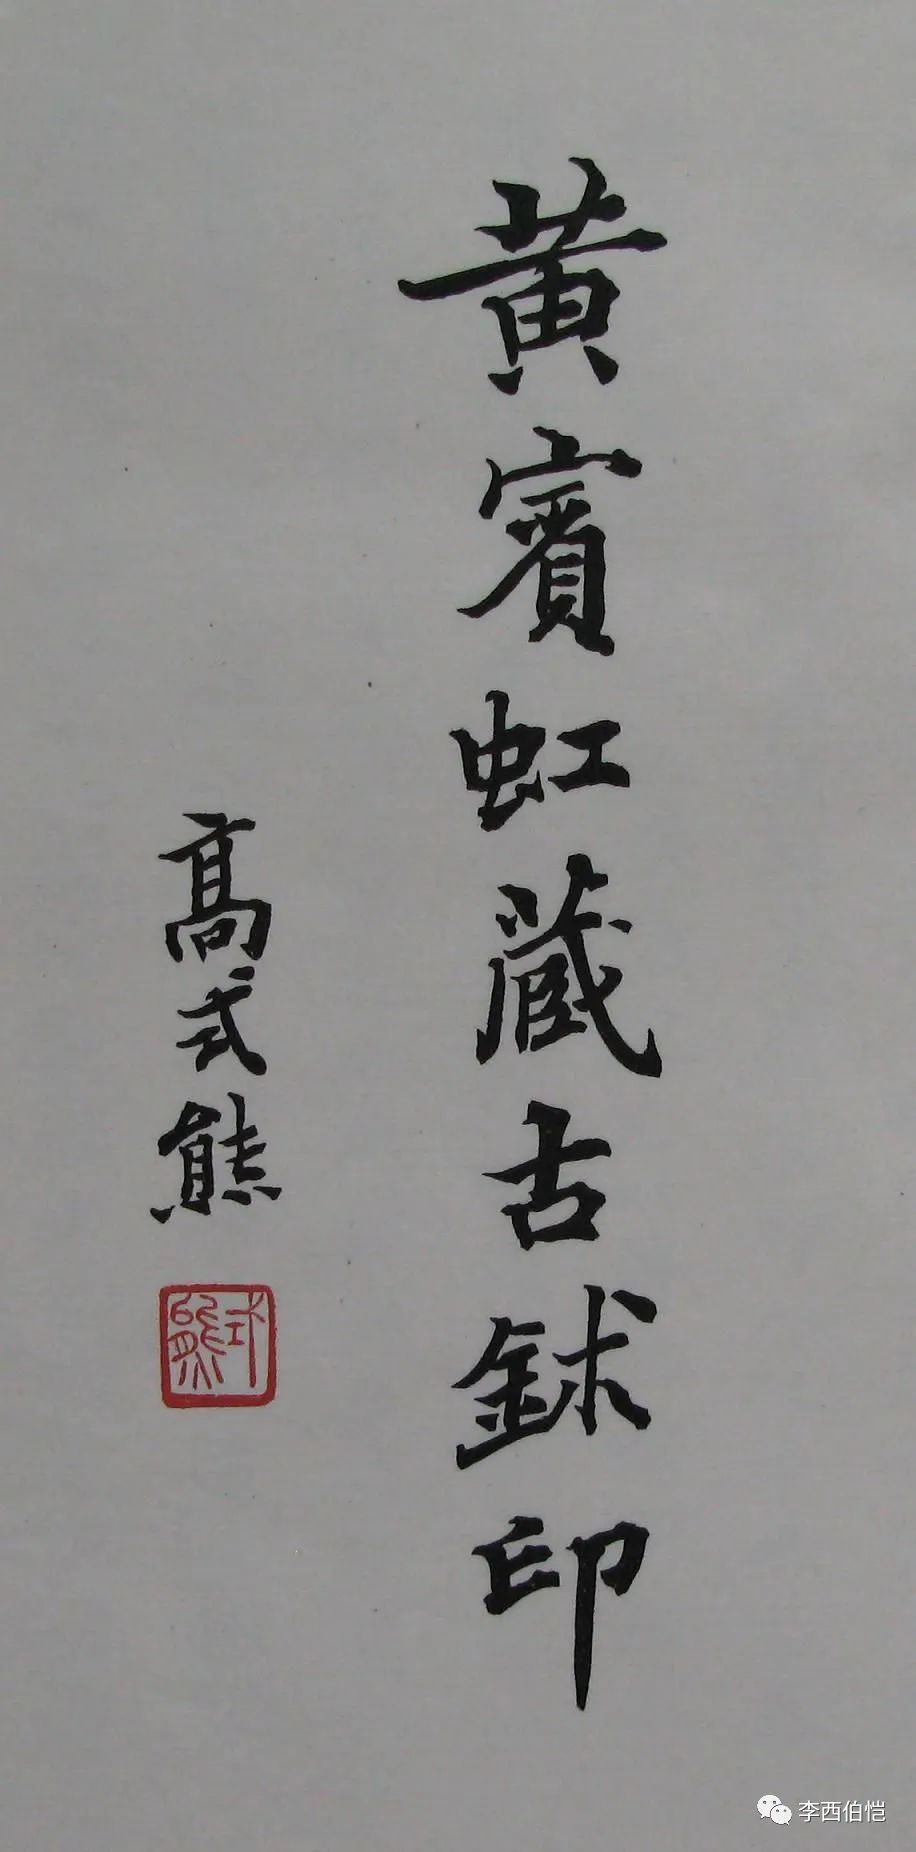 黄賓虹藏古鉥印
高式熊
式熊
李西伯恺